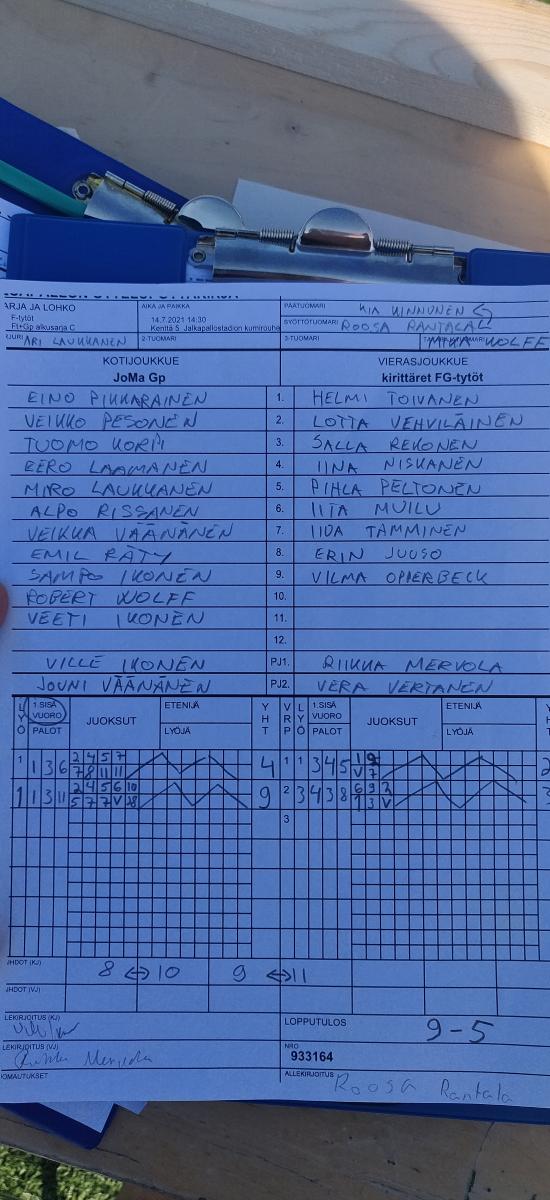 ARJA JA LOHKO
F-tytöt
Ft+Gp alkusarja C
AIKA JA PAIKKA
14.7.2021 14:30
Kenttä 5 Jalkapallostadion kumirouhe
PÄÄTUOMARI KIA KINNUNEN
SYÖTTÖTUOMARI ROOSA RANTALA
ARI LAUKKANEN
2-TUOMARI
3-TUOMARI
MIKA WOLFF
KOTIJOUKKUE
JoMa Gp
VIERASJOUKKUE
kirittäret FG-tytöt
EINO PIKKARAINEN 1. HELMI TOIVANEN
VEIKKO PESONEN 2. LOTTA VEHVILÄINEN
TUOMO KORPI 3. SALLA REKONEN
EERO LAAMANEN 4. IINA NISKANEN
MIRO LAUKKANEN 5. PIHLA PELTONEN
ALPO RISSANEN 6. IITA MUILU
VEIKKA VÄÄNÄNEN 7. IIDA TAMMINEN
EMIL RÄTY 8. ERIN JUUSO
SAMPO IKONEN 9. VILMA OPPERBECK
ROBERT WOLFF 10.
VEETI IKONEN 11.
12.
VILLE IKONEN PJ1. RIIKKA MERVOLA
JOUNI VÄÄNÄNEN PJ2. VERA VERTANEN
LYÖ 1.SISÄ VUORO PALOT JUOKSUT ETENIJÄ LYÖJÄ YHT VRP LYÖ 1.SISÄ VUORO PALOT JUOKSUT ETENIJÄ LYÖJÄ
1 1 3 6 2 4 5 7 4 1 1 3 4 5
7 8 11 11
1 1 3 11 2 4 5 6 10 9 2 3 4 3 8 6 9 2
5 7 7 V 1 3 V
3
HDOT (KJ) 8 ↔ 10 9 ↔ 11
HDOT (VJ)
LEKIRJOITUS (KJ)
LOPPUTULOS 9-5
LEKIRJOITUS (VJ) Riikka Mervola
NRO
933164
OMAUTUKSET
ALLEKIRJOITUS Roosa Rantala